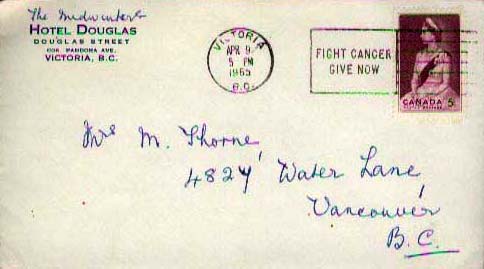 The Midwinters
HOTEL DOUGLAS
DOUGLAS STREET
COR. PANDORA AVE.
VICTORIA, B.C.
VICTORIA
APR 9
5 PM
1965
B.C.
FIGHT CANCER
GIVE NOW
CANADA 5
Mrs M. Thorne,
4824 Water Lane,
Vancouver
B.C.